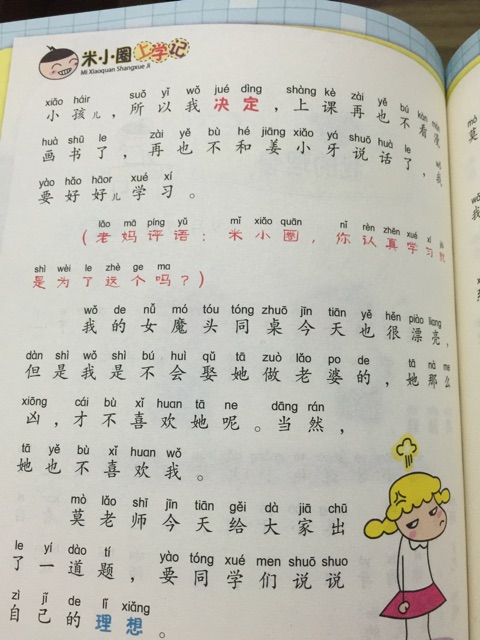 米小圈上学记
Mi Xiaoquan Shangxue Ji
xiǎo háir suǒ yǐ wǒ jué dìng shàng kè zài yě bú kàn màn
小孩儿，所以我决定，上课再也不看漫
huà shū le zài yě bù hé jiāng xiǎo yá shuō huà le wǒ
画书了，再也不和姜小牙说话了，我
yào hǎo hāor xué xí
要好好儿学习。
lǎo mā píng yǔ mǐ xiǎo quān nǐ rèn zhēn xué xí jiù
（老妈评语：米小圈，你认真学习就
shì wèi le zhè ge ma
是为了这个吗？）
wǒ de nǚ mó tóu tóng zhuō jīn tiān yě hěn piào liang
我的女魔头同桌今天也很漂亮，
dàn shì wǒ shì bú huì qǔ tā zuò lǎo po de tā nà me
但是我是不会娶她做老婆的，她那么
xiōng cái bù xǐ huan tā ne dāng rán
凶，才不喜欢她呢。当然，
tā yě bù xǐ huan wǒ
她也不喜欢我。
mò lǎo shī jīn tiān gěi dà jiā chū
莫老师今天给大家出
le yí dào tí yào tóng xué men shuō shuo
了一道题，要同学们说说
zì jǐ de lǐ xiǎng
自己的理想。